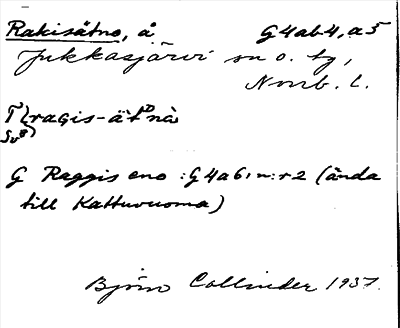 Rakisätno, å G4ab4,a5
Jukkasjärvi sn o. tg,
Norrb. l.
ragis-ät nà
G Raggis eno :G4a6, n: r2 (ända
till Kattuvuoma)
Björn Collinder 1937.